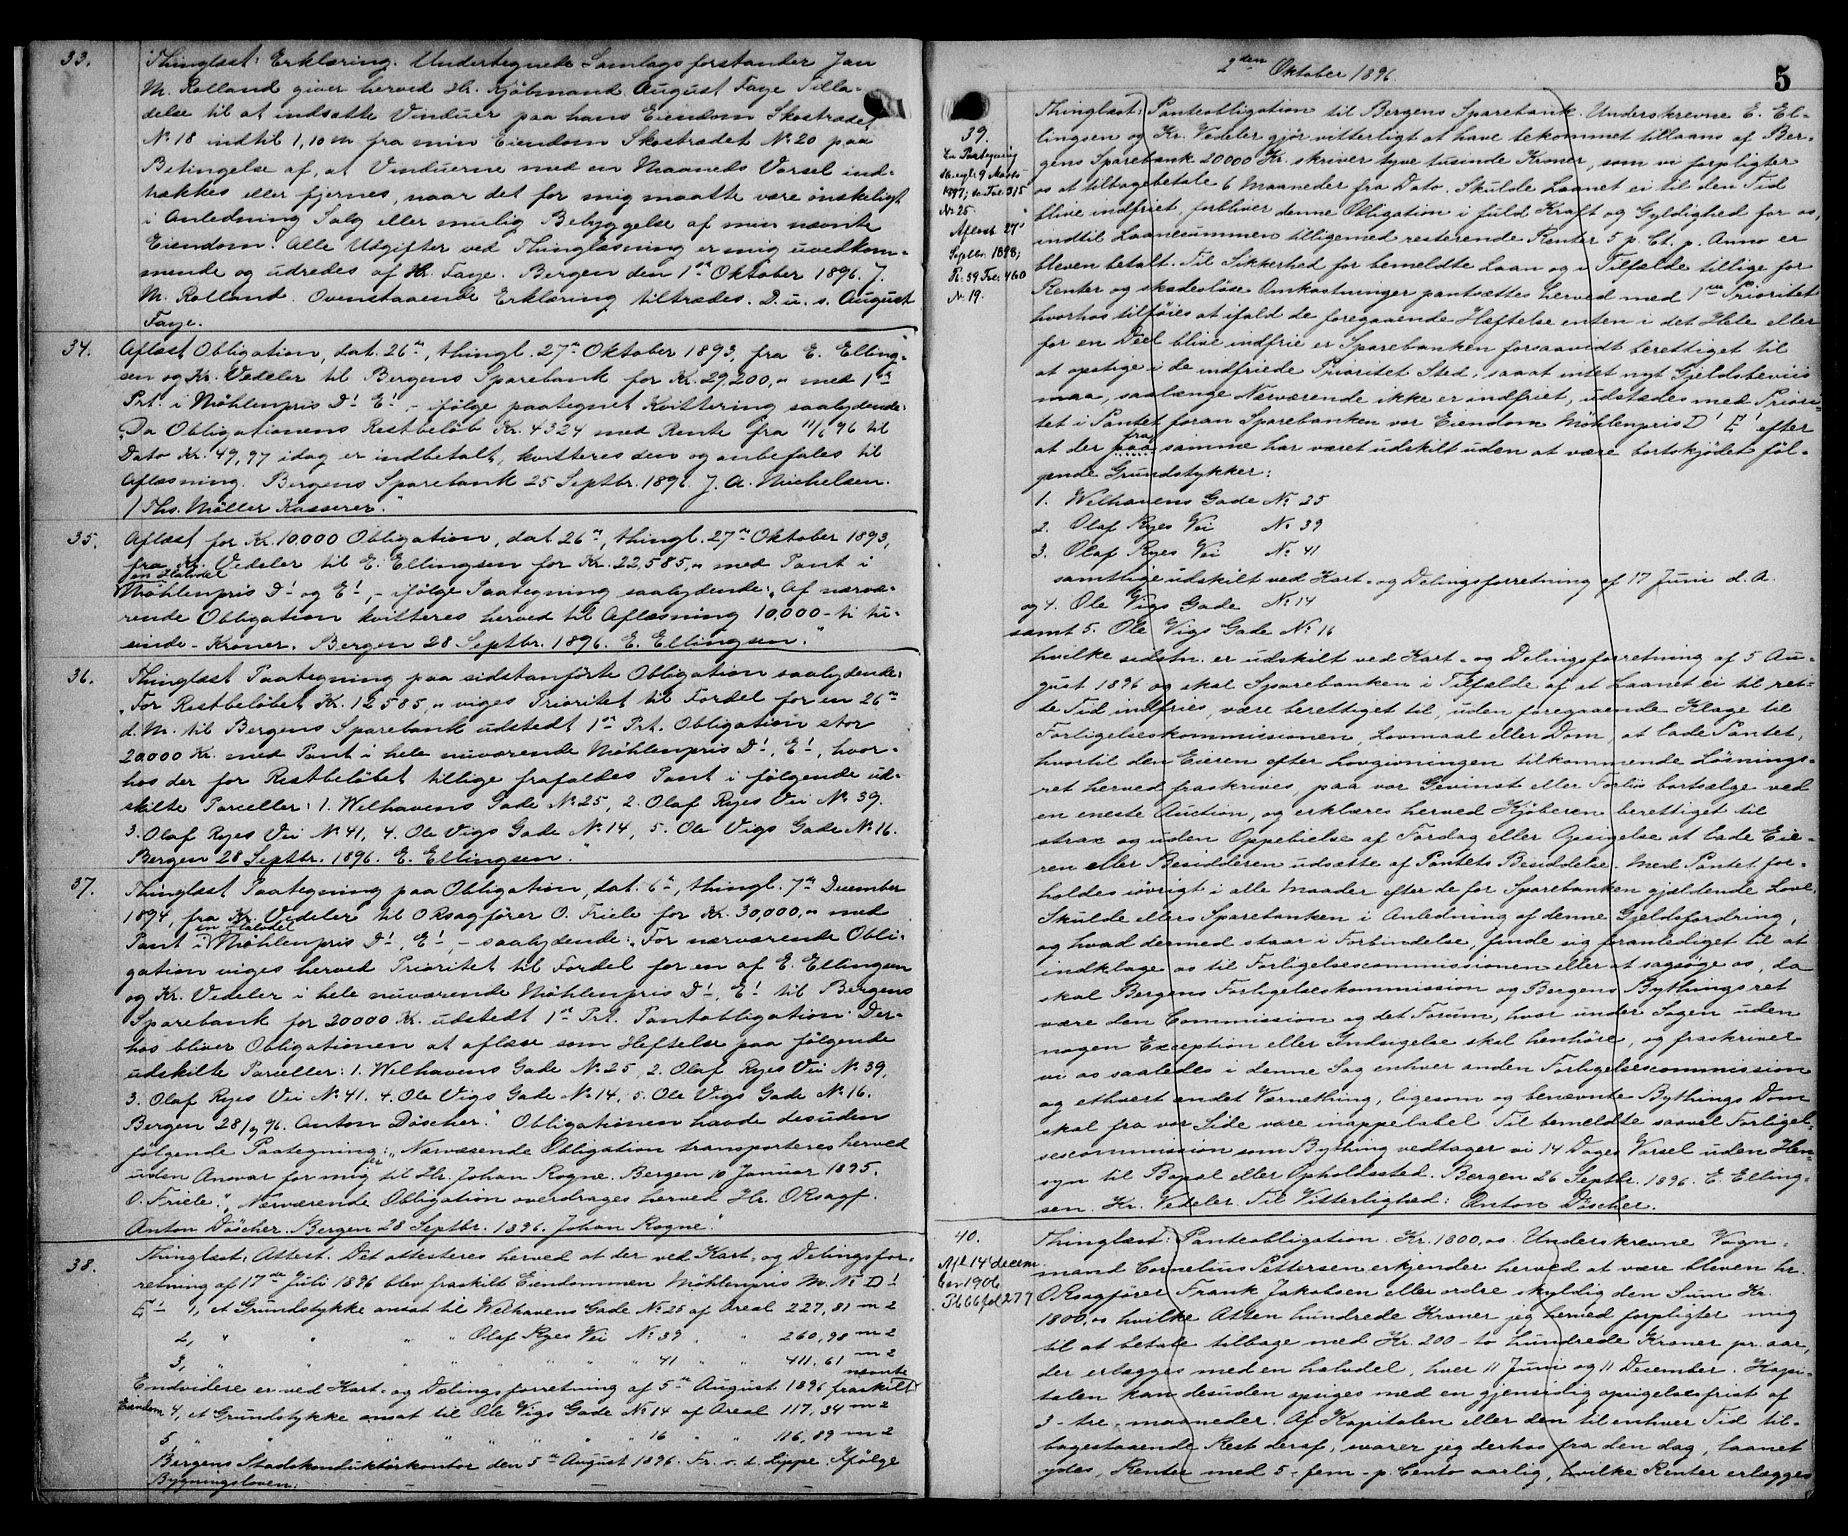 33.
Thinglæst: Erklæring. Undertegnede Samlagsforstander Jan
M. Rolland giver herved Hr. Kjöbmand August Faye Tilla-
delse til at indsætte Vinduer paa hans Eiendom Skostrædet
No 18 indtil 1,10 m fra min Eiendom Skostrædet No 20 paa
Betingelse af, at Vinduerne med en Maaneds Varsel ind-
trækkes eller fjernes, naar det for mig maatte være ønskeligt
i Anledning Salg eller mulig Bebyggelse af min nævnte
Eiendom. Alle Udgifter ved Thinglæsning er mig uvedkom-
mende og udredes af Hr. Faye. Bergen den 1ste Oktober 1896. J.
M. Rolland. Ovenstaaende Erklæring tiltrædes. D. u. s. August
Faye.
34.
Aflæst Obligation, dat. 26de, thingl. 27de Oktober 1893, fra E. Elling-
sen og Kr. Vedeler til Bergens Sparebank for Kr. 29,200,,, med 1ste
Prt. i Møhlenpris D! E! - ifølge paategnet Kvittering saalydende:
"Da Obligationens Restbeløb Kr. 4324 med Rente fra 11/6 96 til
Dato Kr. 49,97 idag er indbetalt, kvitteres den og anbefales til
Aflæsning. Bergens Sparebank 25 Septbr. 1896. J. A. Michelsen.
/ Ths. Møller Kasserer."
35.
Aflæst for Kr. 10,000 Obligation, dat. 26de, thingl. 27de Oktober 1893,
fra Kr. Vedeler til E. Ellingsen for Kr. 22,585,,, med Pant i
en Halvdel
Møhlenpris D! og E!, - ifølge Paategning saalydende: "Af nærvæ-
rende Obligation kvitteres herved til Aflæsning 10,000 - ti tu-
sinde - Kroner. Bergen 28 Septbr. 1896. E. Ellingsen."
36.
Thinglæst Paategning paa sidstanførte Obligation saalydende:
"For Restbeløbet Kr. 12585,,, viges Prioritet til Fordel for en 26de
d. M. til Bergens Sparebank udstedt 1ste Prt. Obligation stor
20000 Kr. med Pant i hele nuværende Møhlenpris D!, E!, hvor-
hos der for Restbeløbet tillige frafaldes Pant i følgende ud-
skilte Parceller: 1. Welhavens Gade No 25, 2. Olaf Ryes Vei No 39.
3. Olaf Ryes Vei No 41, 4. Ole Vigs Gade No 14, 5. Ole Vigs Gade No 16.
Bergen 28 Septbr. 1896. E. Ellingsen."
37.
Thinglæst Paategning paa Obligation, dat. 6te, thingl. 7de December
1894, fra Kr. Vedeler til ORsagfører O. Friele for Kr. 30,000,,, med
en Halvdel
Pant i Møhlenpris D!, E!, - saalydende: "For nærværende Obli-
gation viges herved Prioritet til Fordel for en af E. Ellingsen
og Kr. Vedeler i hele nuværende Møhlenpris D!, E! til Bergens
Sparebank for 20000 Kr. udstedt 1ste Prt. Pantobligation. Der-
hos bliver Obligationen at aflæse som Heftelse paa følgende
udskilte Parceller: 1. Welhavens Gade No 25, 2. Olaf Ryes Vei No 39,
3. Olaf Ryes Vei No 41. 4. Ole Vigs Gade No 14, 5. Ole Vigs Gade No 16.
Bergen 28/9 96. Anton Döscher." Obligationen havde desuden
følgende Paategning: "Nærværende Obligation transporteres herved
uden Ansvar for mig til Hr. Johan Rogne. Bergen 10 Januar 1895.
O. Friele." "Nærværende Obligation overdrages herved Hr. ORsagf.
Anton Döscher. Bergen 28 Septbr. 1896. Johan Rogne."
38.
Thinglæst: Attest. Det attesteres herved at der ved Kart- og Delingsfor-
retning af 17de Juli 1896 blev fraskilt Eiendommen Møhlenpris M. No D!
E! 1, et Grundstykke ansat til Welhavens Gade No 25 af Areal 227,81 m2
2, " " " " Olaf Ryes Vei No 39 " " 260,98 m2
3, " " " " " " " 41 " " 411,61 m2
nævnte
Endvidere er ved Kart- og Delingsforretning af 5te August 1896 fraskilt
Eiendom 4, et Grundstykke ansat til Ole Vigs Gade No 14 af Areal 117,34 m2
5, " " " " " " " 16 " " 116,89 m2
Bergens Stadskonduktörkontor den 5te August 1896. Fr. v. d. Lippe. Ifølge
Bygningsloven.
2den Oktober 1896
5
39.
En Paategning
thgl. 9 Marts
1897; se Fol. 315
No 25.
Aflæst 27de
Septbr. 1898;
Pt. 59 Fol. 460
No 19.
Thinglæst: Panteobligation til Bergens Sparebank. Underskrevne E. El-
lingsen og Kr. Vedeler gjør vitterligt at have bekommet tillaans af Ber-
gens Sparebank 20000 Kr. skriver tyve tusinde Kroner, som vi forpligter
os at tilbagebetale 6 Maaneder fra Dato. Skulde Laanet ei til den Tid
blive indfriet, forbliver denne Obligation i fuld Kraft og Gyldighed for os,
indtil Laanesummen tilligemed resterende Renter 5 p. Ct. p. Anno er
bleven betalt. Til Sikkerhed for bemeldte Laan og i Tilfælde tillige for
Renter og skadesløse Omkostninger pantsættes herved med 1ste Prioritet
hvorhos tilføies at ifald de foregaaende Hæftelse enten i det Hele eller
for en Deel blive indfrie er Sparebanken forsaavidt berettiget til
at opstige i de indfriede Prioritet Sted, saaat intet nyt Gjeldsbeviis
maa, saalænge Nærværende ikke er indfriet, udstædes med Priori-
tet i Pantet foran Sparebanken vor Eiendom Møhlenpris D! E! efter
fra
at der paa samme har været udskilt uden at være bortskjødet føl-
gende Grundstykker:
1. Welhavens Gade No 25
2. Olaf Ryes Vei No 39
3. Olaf Ryes Vei No 41
samtlige udskilt ved Kart- og Delingsforretning af 17 Juni d. A.
og 4. Ole Vigs Gade No 14
samt 5. Ole Vigs Gade No 16
hvilke sidstn. er udskilt ved Kart- og Delingsforretning af 5 Au-
gust 1896 og skal Sparebanken i Tilfælde af at Laanet ei til ret-
te Tid indfries, være berettiget til, uden foregaaende Klage til
Forligelseskommissionen, Lovmaal eller Dom, at lade Pantet,
hvortil den Eieren efter Lovgivningen tilkommende Løsnings-
ret herved fraskrives, paa vor Gevinst eller Forlis bortsælge ved
en eneste Auction, og erklæres herved Kjøberen berettiget til
strax og uden Oppebielse af Fardag eller Opsigelse at lade Eie-
ren eller Besidderen udsætte af Pantets Besiddelse. Med Pantet for-
holdes iøvrigt i alle Maader efter de for Sparebanken gjældende Love.
Skulde ellers Sparebanken i Anledning af denne Gjeldsfordring,
og hvad dermed staar i Forbindelse, finde sig foranlediget til at
indklage os til Forligelsescommissionen eller at sagsøge os, da
skal Bergens Forligelseskommission og Bergens Bythingsret
være den Commission og det Forum, hvor under Sagen uden
nogen Exception eller Indsigelse skal henhöre, og fraskriver
vi os saaledes i denne Sag enhver anden Forligelsescommission
og ethvert andet Værnething, ligesom og benævnte Bythings Dom
skal fra vor Side være inappelabel. Til bemeldte saavel Forligel-
sescommission som Bything vedtager vi 14 Dages Varsel uden Hen-
syn til Bopæl eller Opholdssted. Bergen 26 Septbr. 1896. E. Elling-
sen. Kr. Vedeler. Til Vitterlighed: Anton Döscher.
40.
Afl 14de decem
ber 1906
Pb 66 fol 277
Thinglæst: Panteobligation. Kr. 1800,00. Underskrevne Vogn-
mand Cornelius Pettersen erkjender herved at være bleven hr.
ORsagfører Frank Jakobsen eller ordre skyldig den Sum Kr.
1800,00 hvilke Atten hundrede Kroner jeg herved forpligter mig
til at betale tilbage med Kr. 200 - to hundrede Kroner pr. aar,
der erlægges med en halvdel, hver 11 Juni og 11 December. Kapi-
talen kan desuden opsiges med en gjensidig opsigelsesfrist af
3 - tre - maaneder. Af Kapitalen eller den til enhver Tid til-
bagestaaende Rest deraf, svarer jeg derhos fra den dag, laanet
ydes, Renter med 5 - fem - p. Cento aarlig, hvilke Renter erlægges